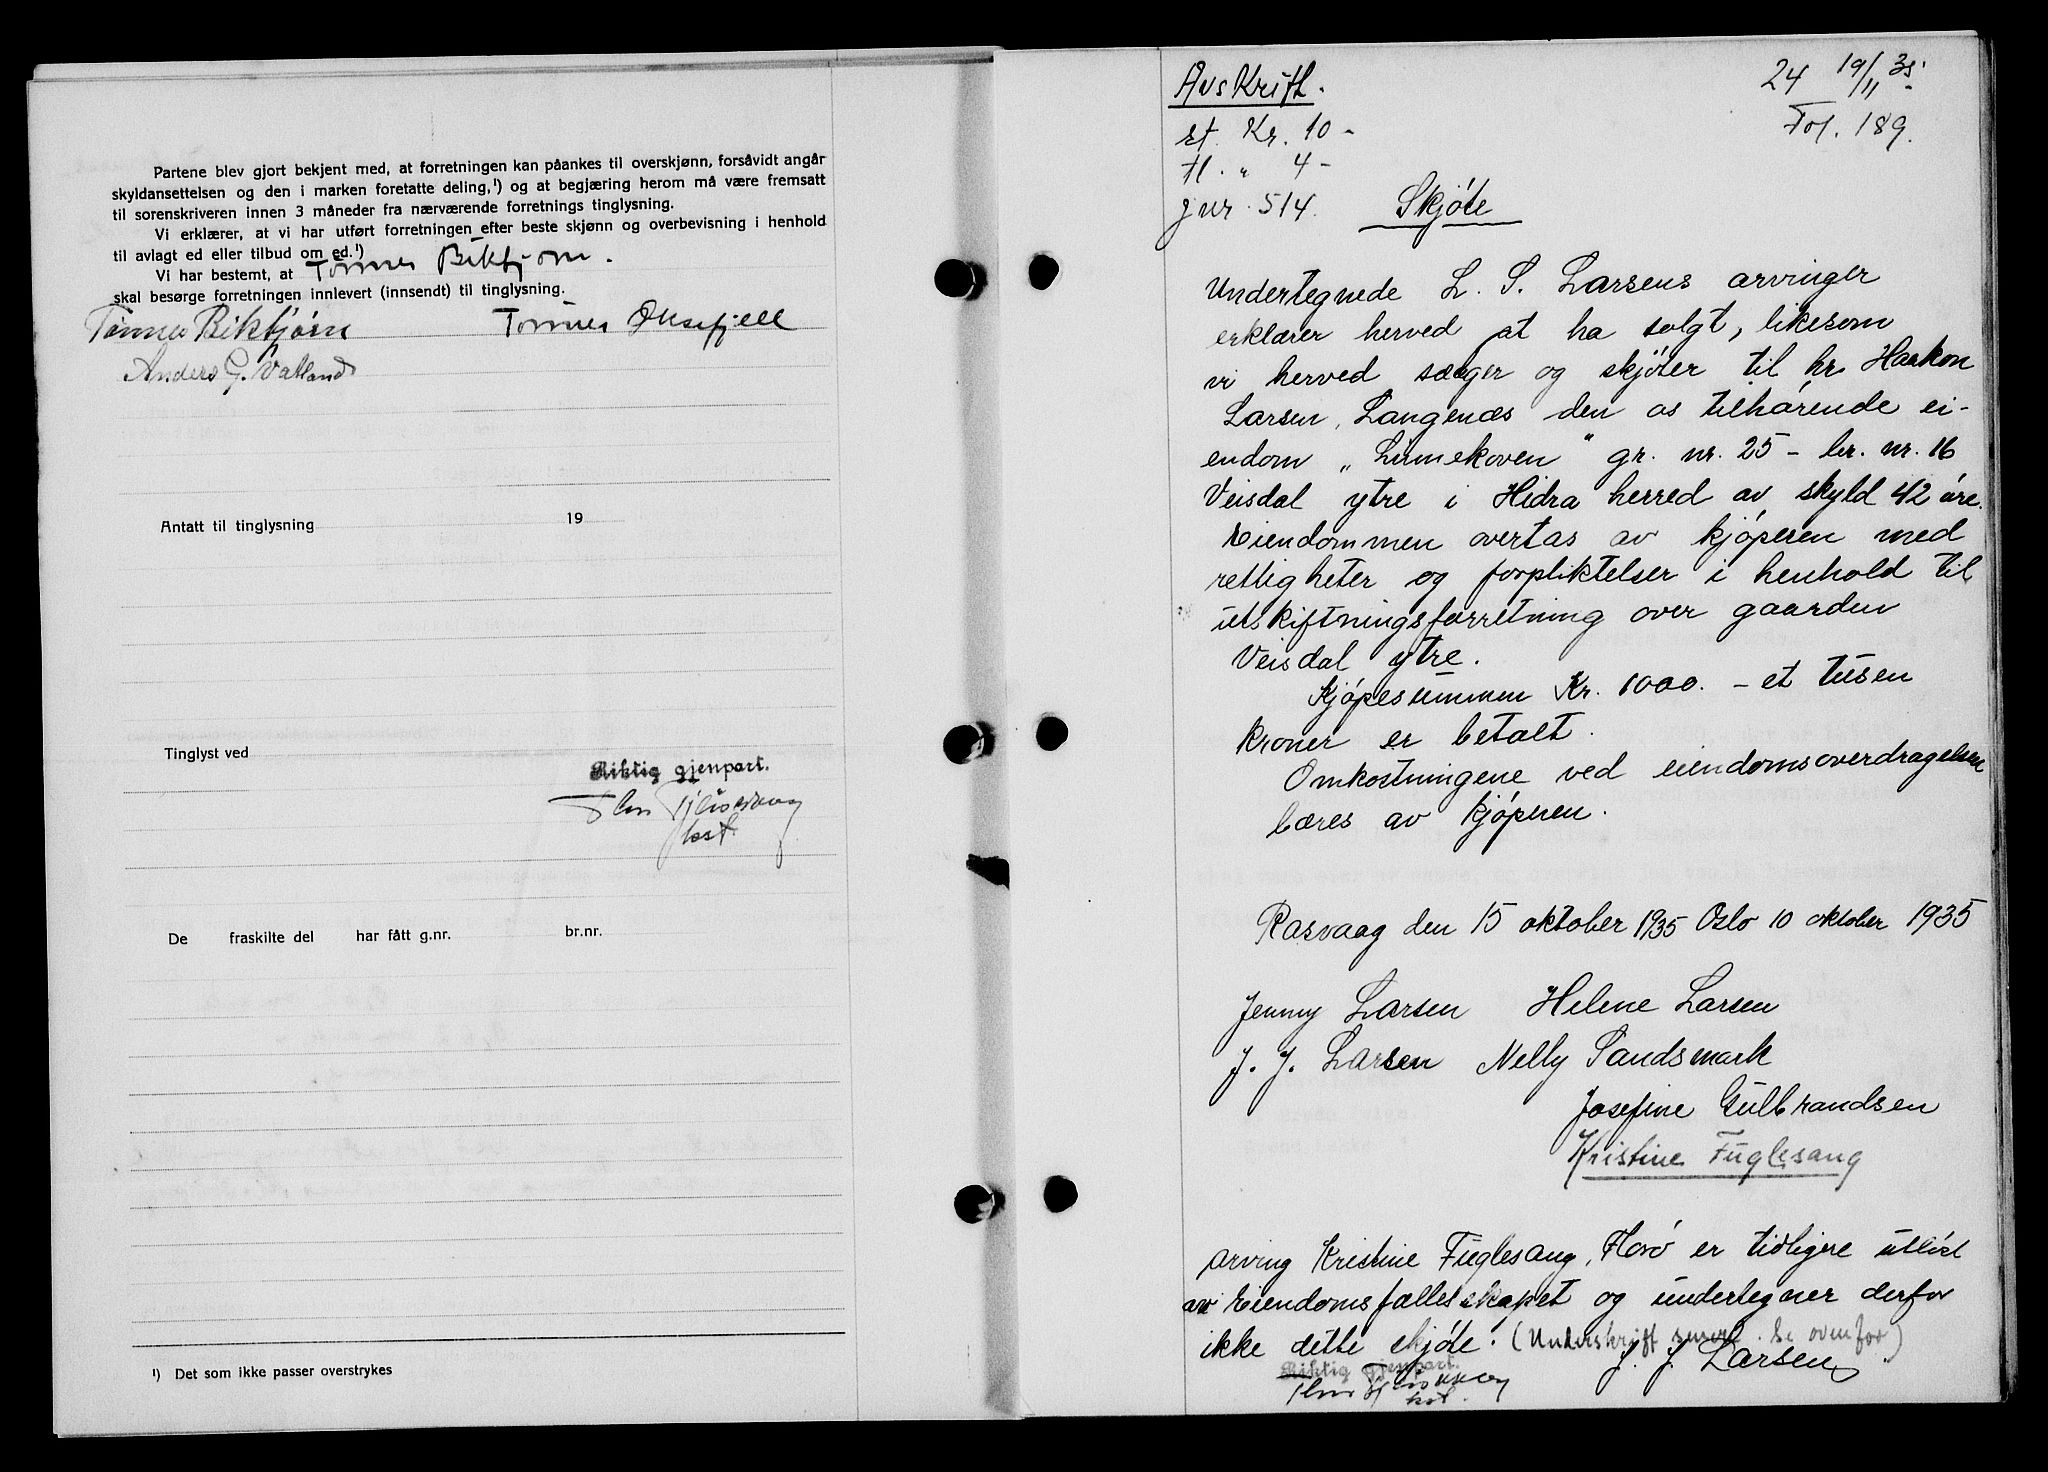 Partene blev gjort bekjent med, at forretningen kan påankes til overskjønn, forsåvidt angår
skyldansettelsen og den i marken foretatte deling,¹) og at begjæring herom må være fremsatt
til sorenskriveren innen 3 måneder fra nærværende forretnings tinglysning.
Vi erklærer, at vi har utført forretningen efter beste skjønn og overbevisning i henhold
til avlagt ed eller tilbud om ed.¹)
Vi har bestemt, at Tønnes Bikbjørn.
skal besørge forretningen innlevert (innsendt) til tinglysning.
Tønnes Bikbjørn Tønnes Oksefjell
Anders G. Vatland
Antatt til tinglysning 19
Tinglyst ved
Riktig gjenpart.
De fraskilte del har fått g.nr. br.nr.
¹) Det som ikke passer overstrykes
24 19/11 35.
Avskrift.
Fol. 189.
st. Kr. 10 -
tl. " 4 -
jnr. 514. Skjöte
Undertegnede L. S. Larsens arvinger
erklærer herved at ha solgt, likesom
vi herved sælger og skjöter til hr. Haakon
Larsen, Langenæs den os tilhörende ei-
endom „Linnekoven" gr. nr. 25 - br. nr. 16
Veisdal ytre i Hidra herred av skyld 42 öre.
Eiendommen overtas av kjöperen med
rettigheter og forpliktelser i henhold til
utskiftningsforretning over gaarden
Veisdal ytre.
Kjöpesummen Kr. 1000. - et tusen
kroner er betalt.
Omkostningene ved eiendomsoverdragelsen
bæres av kjöperen.
Rasvaag den 15 oktober 1935 Oslo 10 oktober 1935
Jenny Larsen Helene Larsen
J. J. Larsen Nelly Sandsmark
Josefine Gulbrandsen
Kristine Fuglesang
Arving Kristine Fuglesang, Florö er tidligere utlöst
av Eiendomsfællesskapet og undertegner derfor
ikke dette skjöte. (Underskrift senere. Se ovenfor)
J. J. Larsen
Riktig gjenpart.